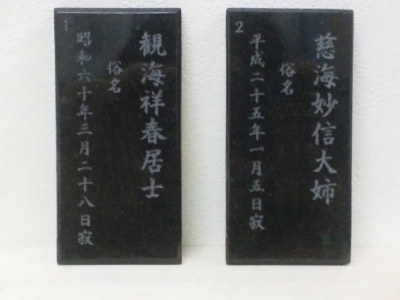 1
観海祥春居士
俗名
昭和六十年三月二十八日寂
2
慈海妙信大姉
俗名
平成二十五年一月五日寂